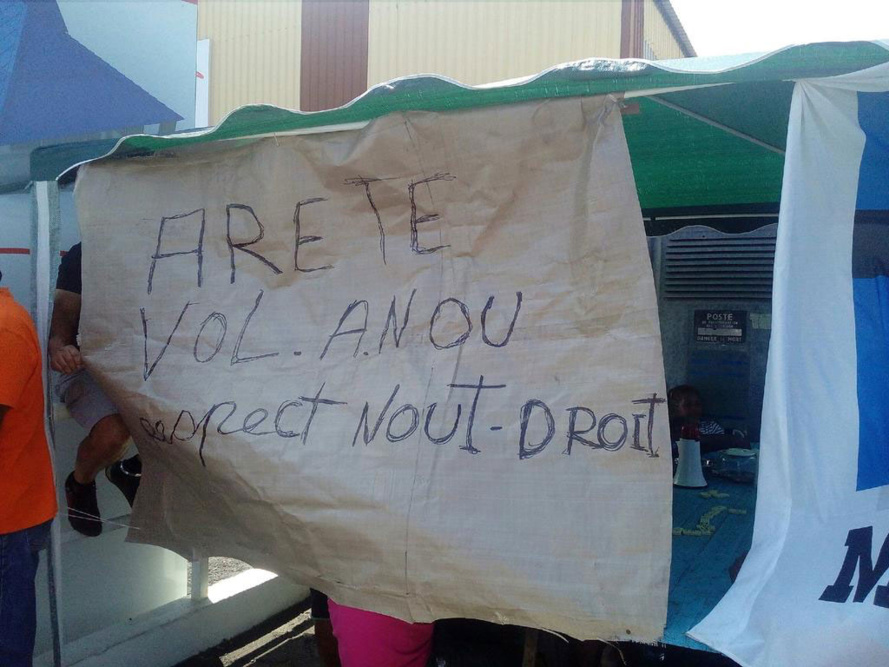 ARETE
VOL.A.NOU
respect NOUT-DROIT
POSTE
M